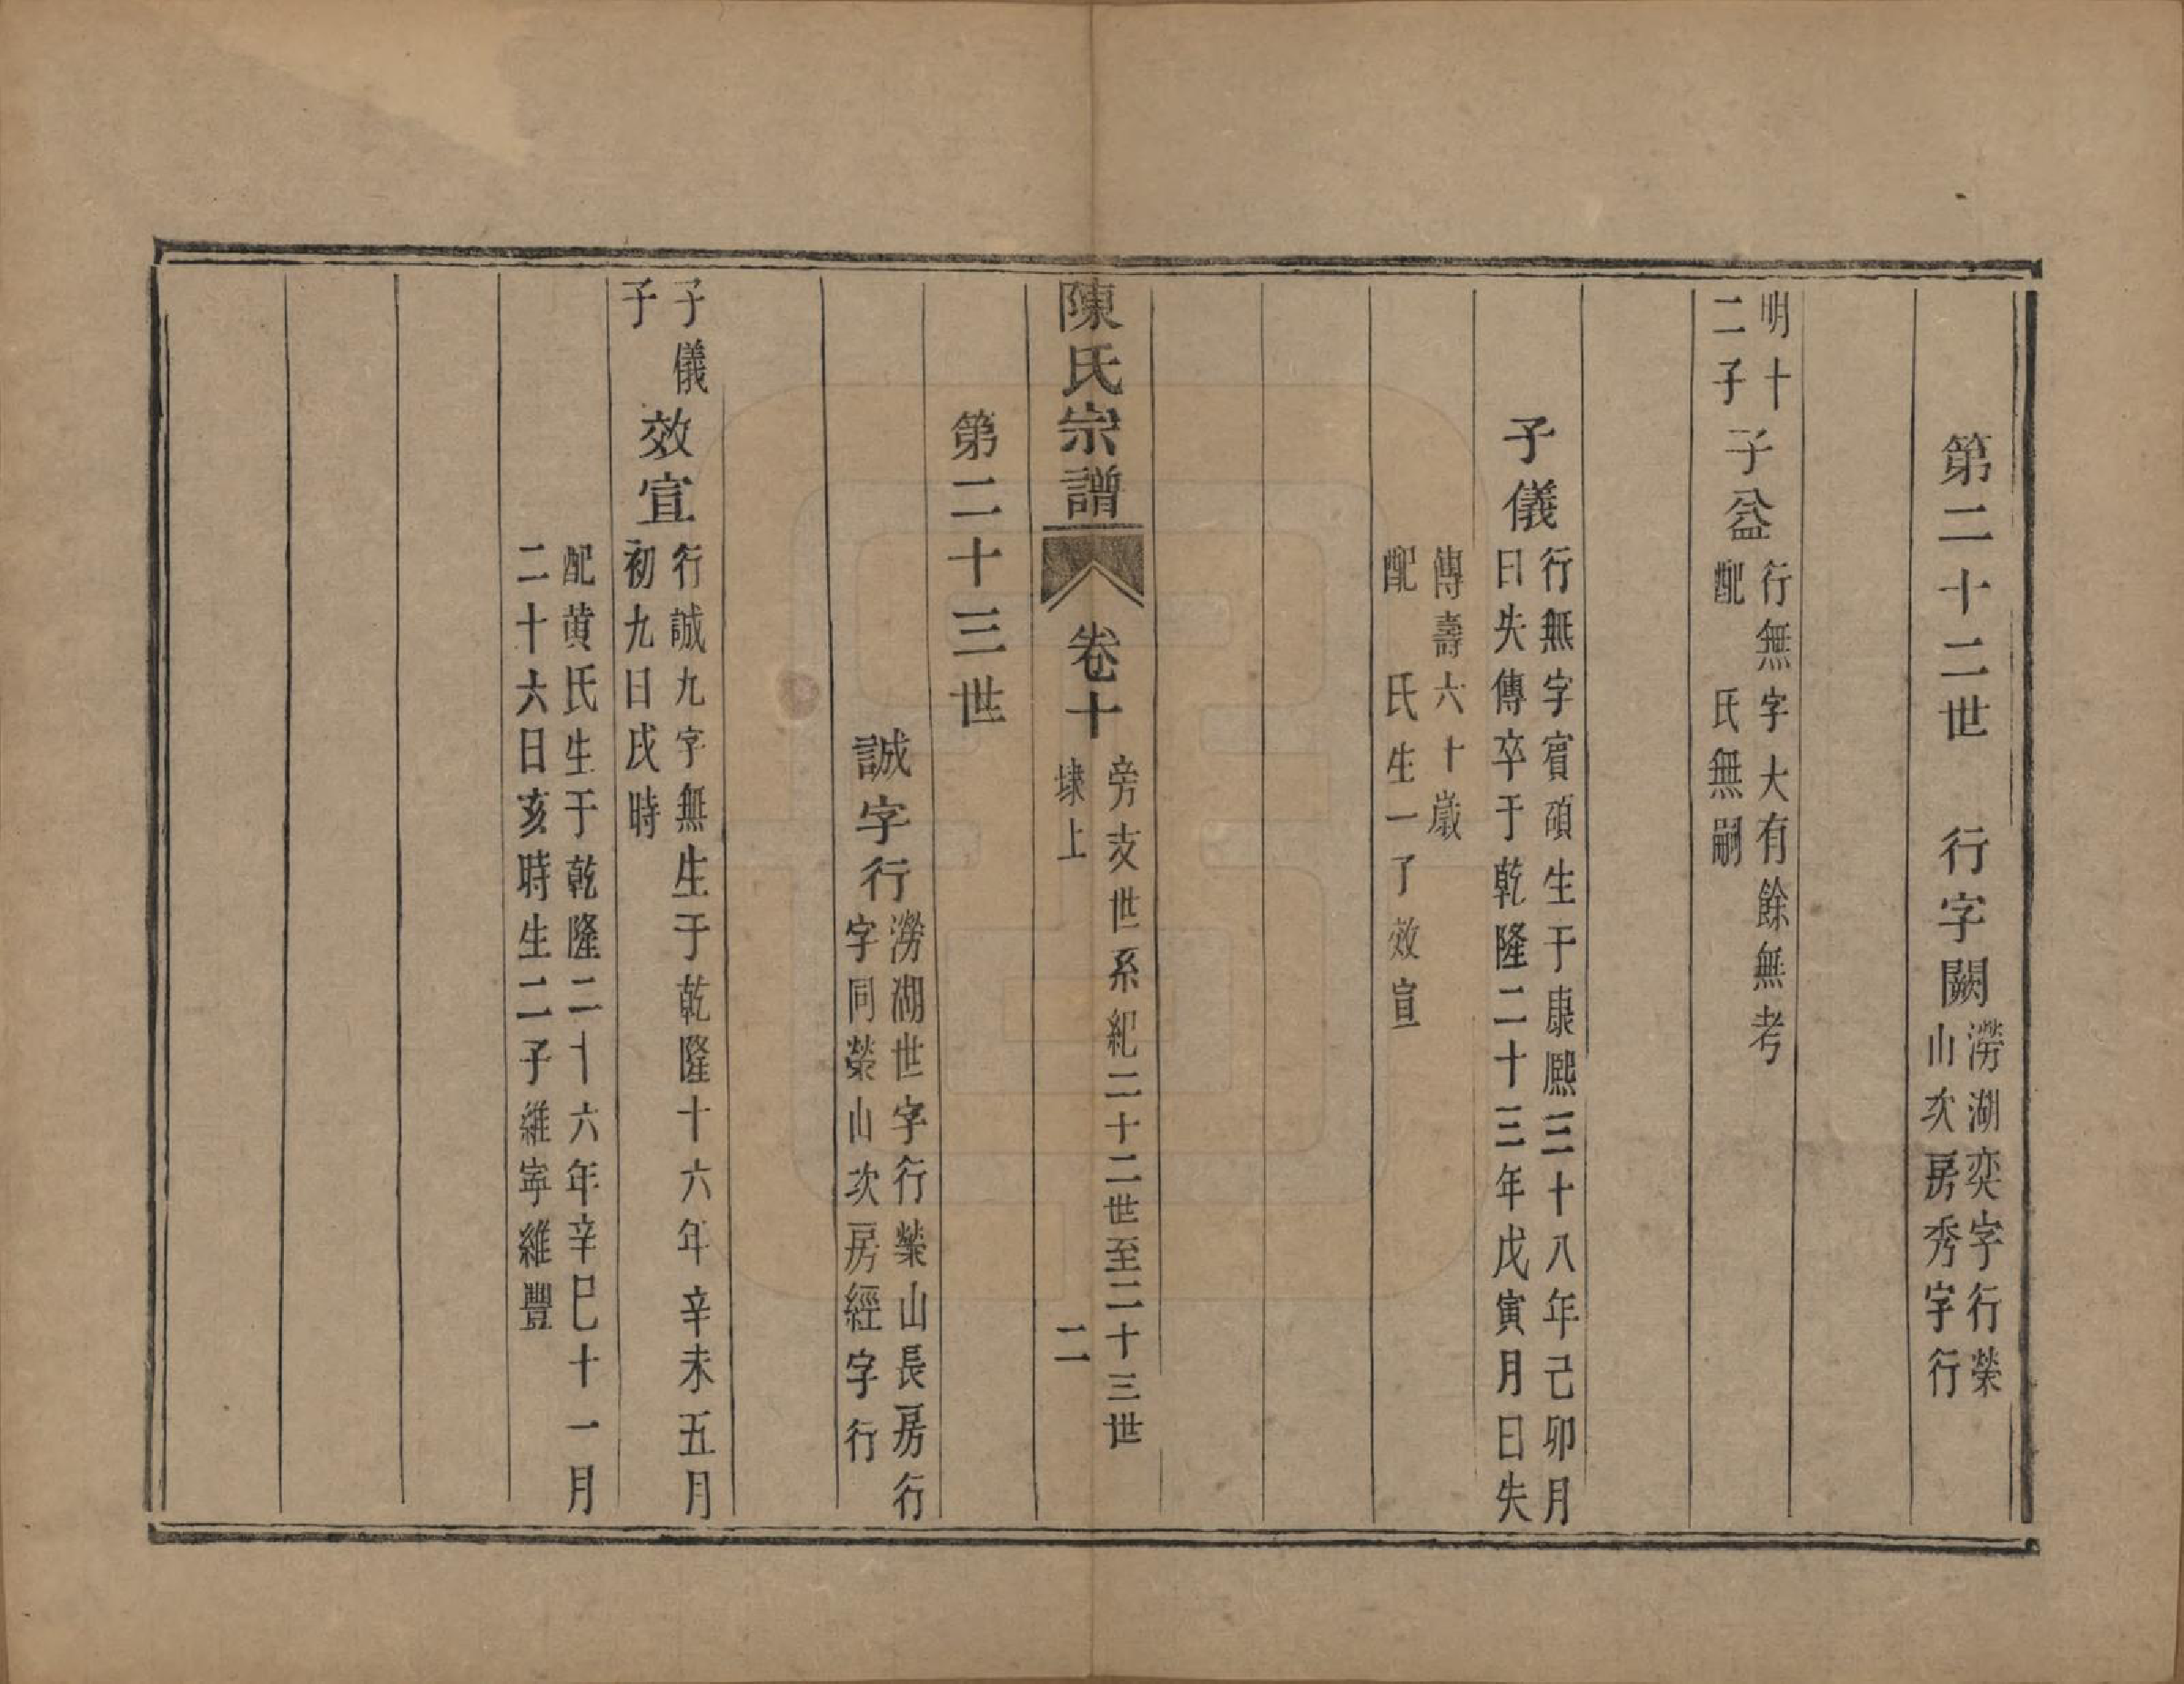 第二十二世　行字闕
澇湖奕字行榮
山次房秀字行
明十
二子
子益
行無字大有餘無考
配　氏無嗣
子儀
行無字賓碩生于康熙三十八年己卯月
日失傳卒于乾隆二十三年戊寅月日失
傳壽六十歲
配　氏生一了效宣
陳氏宗譜
卷十
旁支世系紀二十二世至二十三世
埭上
二
第二十三世
誠字行
澇湖世字行榮山長房行
字同榮山次房經字行
子儀
子
效宣
行誠九字無生于乾隆十六年辛未五月
初九日戌時
配黄氏生于乾隆二十六年辛巳十一月
二十六日亥時生二子維寧維豐